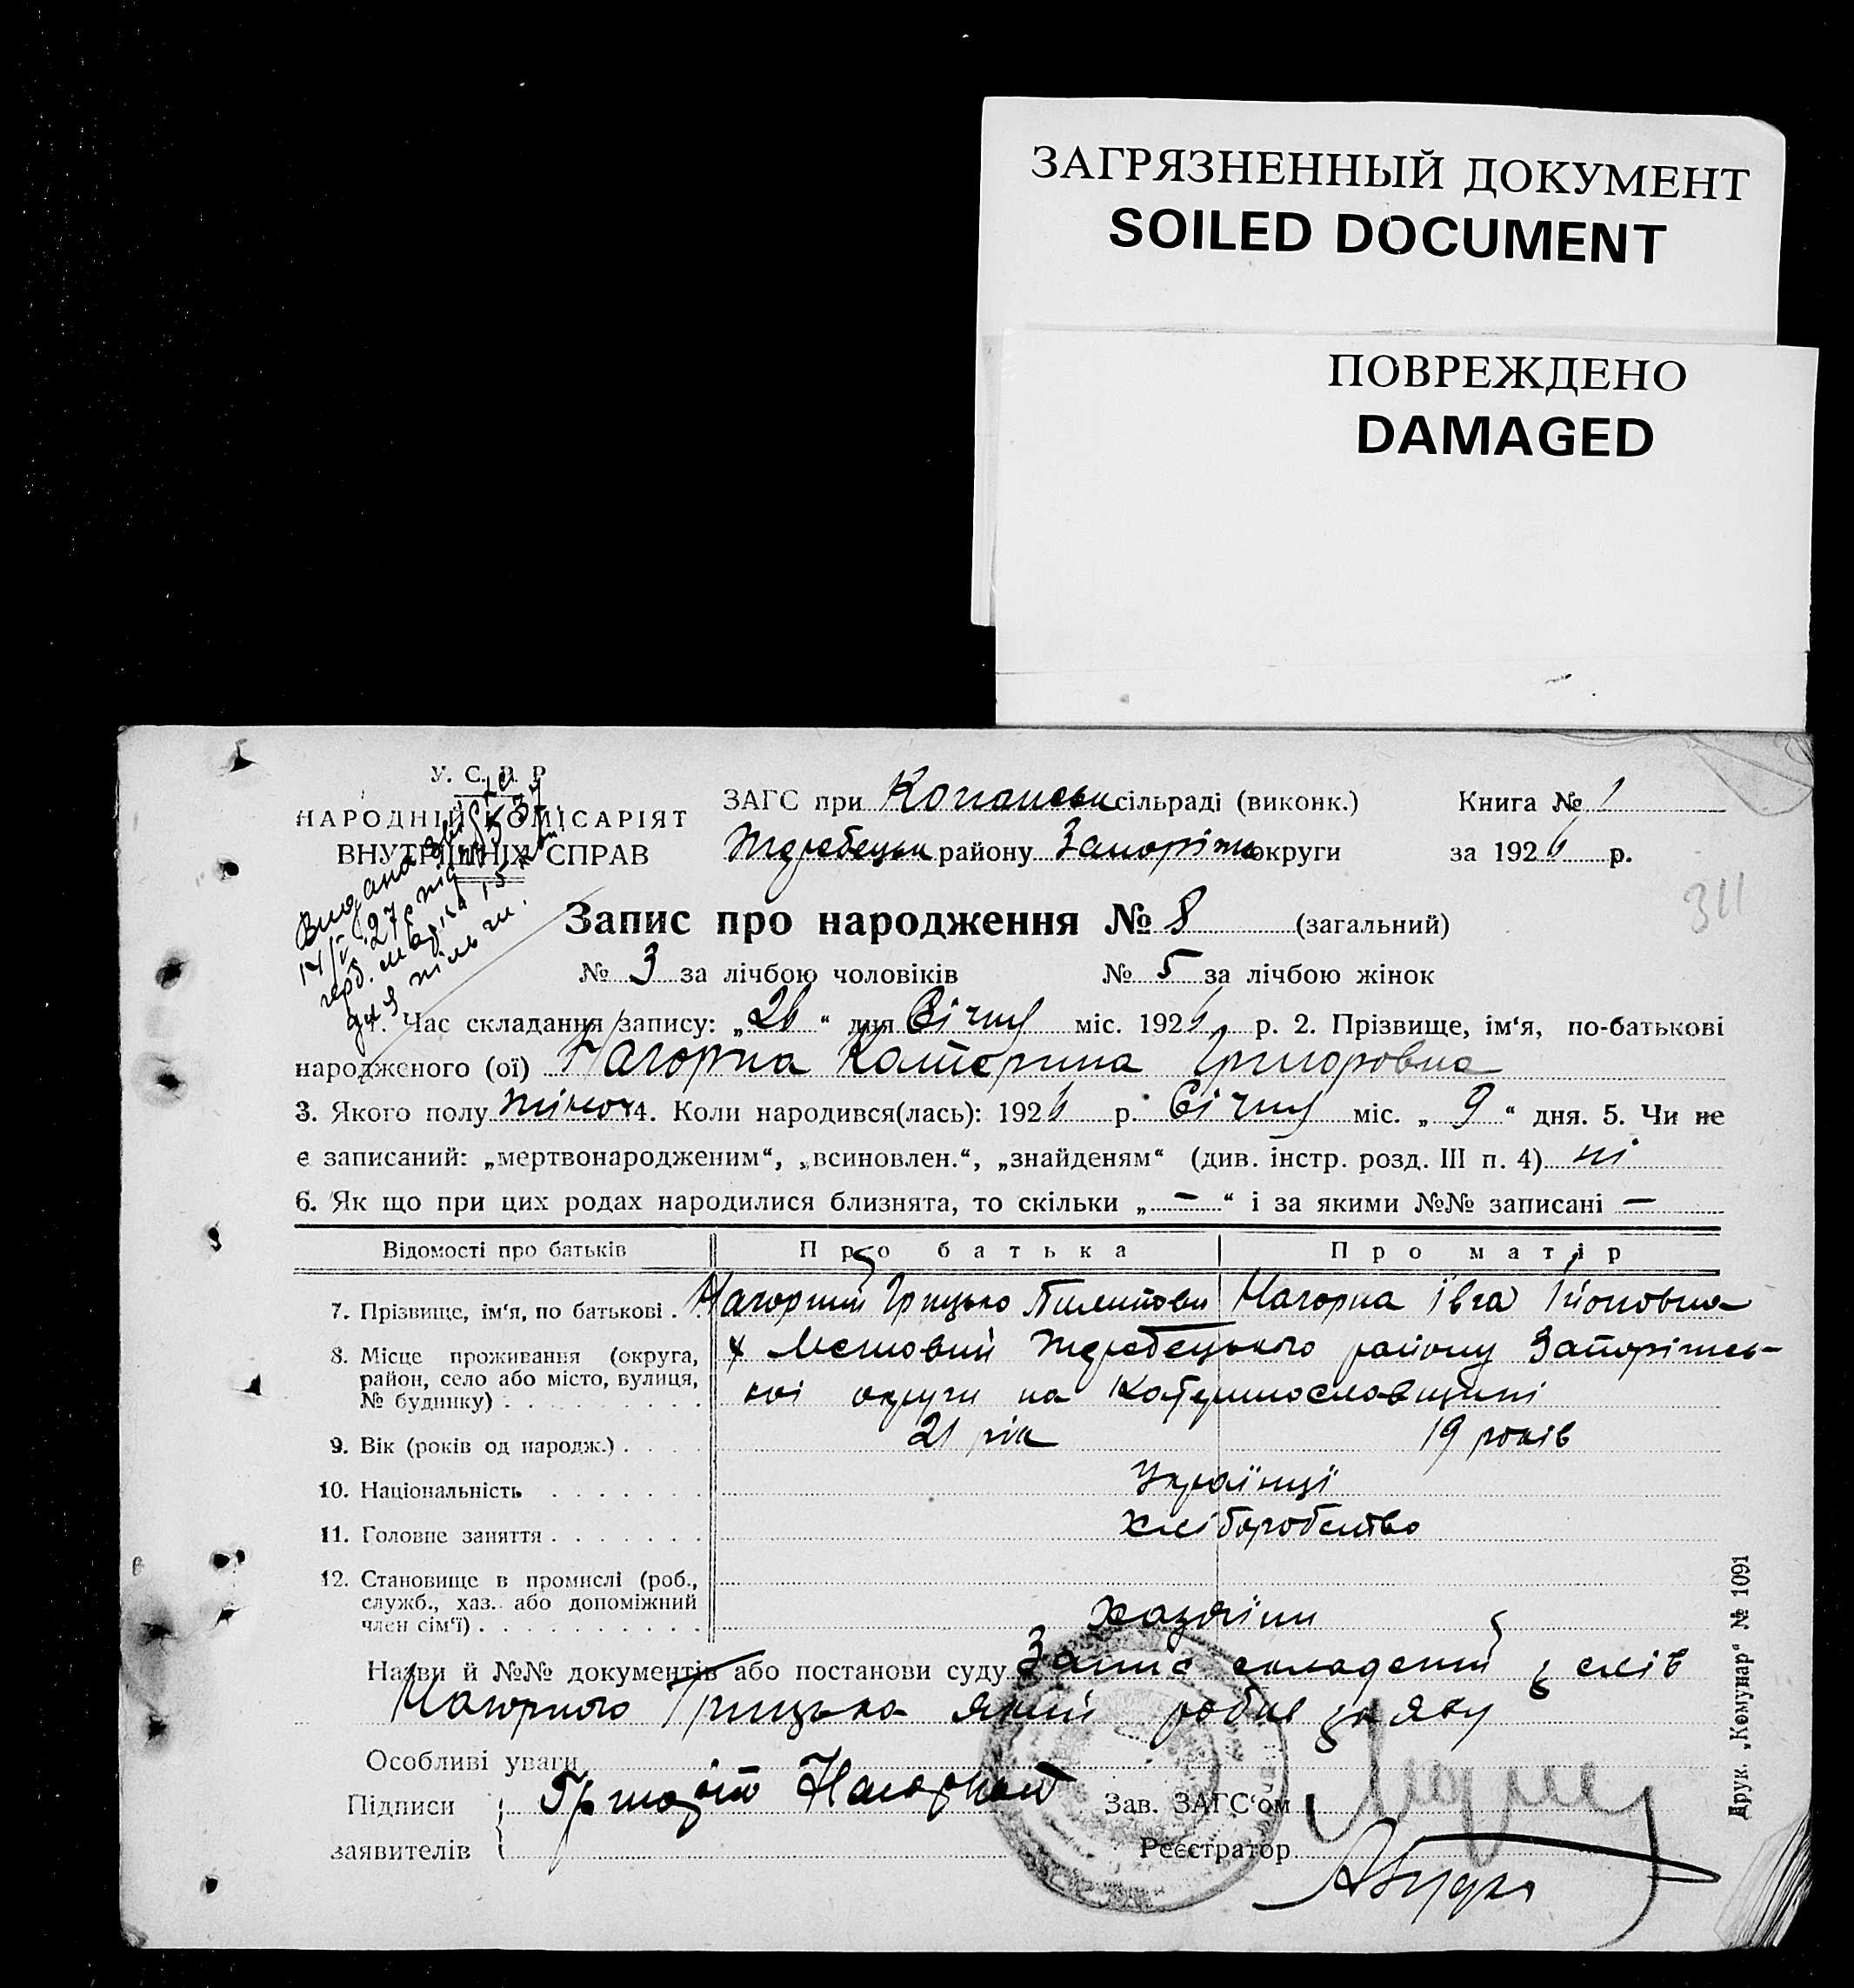 ЗАГРЯЗНЕННЫЙ ДОКУМЕНТ
SOILED DOCUMENT
ПОВРЕЖДЕНО
DAMAGED
У. С. Р. Р.
НАРОДНІЙ КОМІСАРІЯТ
ВНУТРІШНІХ СПРАВ
ЗАГС при Копанськ сільраді (виконк.) Книга № 1
Жеребецьк району Запоріжс округи за 1926 р.
311
Запис про народження № 8 (загальний)
№ 3 за лічбою чоловіків № 5 за лічбою жінок
1. Час складання запису: „26“ дня Січня міс. 1926 р. 2. Прізвище, ім‘я, по-батькові
народженого (ої) Нагорна Катерина Григоровна
3. Якого полу жіноч 4. Коли народився(лась): 1926 р. Січня міс. „9“ дня. 5. Чи не
є записаний: „мертвонародженим“, „всиновлен.“, „знайденям“ (див. інстр. розд. III п. 4) ні
6. Як що при цих родах народилися близнята, то скільки „—“ і за якими №№ записані —
Відомості про батьків Про батька Про матір
7. Прізвище, ім‘я, по батькові . . Нагорний Грицько Пилипови Нагорна Івга
8. Місце проживання (округа, район, село або місто, вулиця, № будинку) . . . . . . . . . Жеребецького району Запоріжсь-
кої округи на Катеринославщині
9. Вік (років од народж.) . . . . 21 рік 19 років
10. Національність . . . . . . . Українці
11. Головне заняття . . . . . . . хліборобство
12. Становище в промислі (роб.,
служб., хаз. або допоміжний
член сім‘ї) . . . . . . . . . . Хазяіни
Назви й №№ документів або постанови суду Запис складений з слів
Нагорного Грицька який робив заяву
Особливі уваги
Підписи Нагорний Зав. ЗАГС‘ом
заявителів Реєстратор
Друк. „Комунар“ № 1091